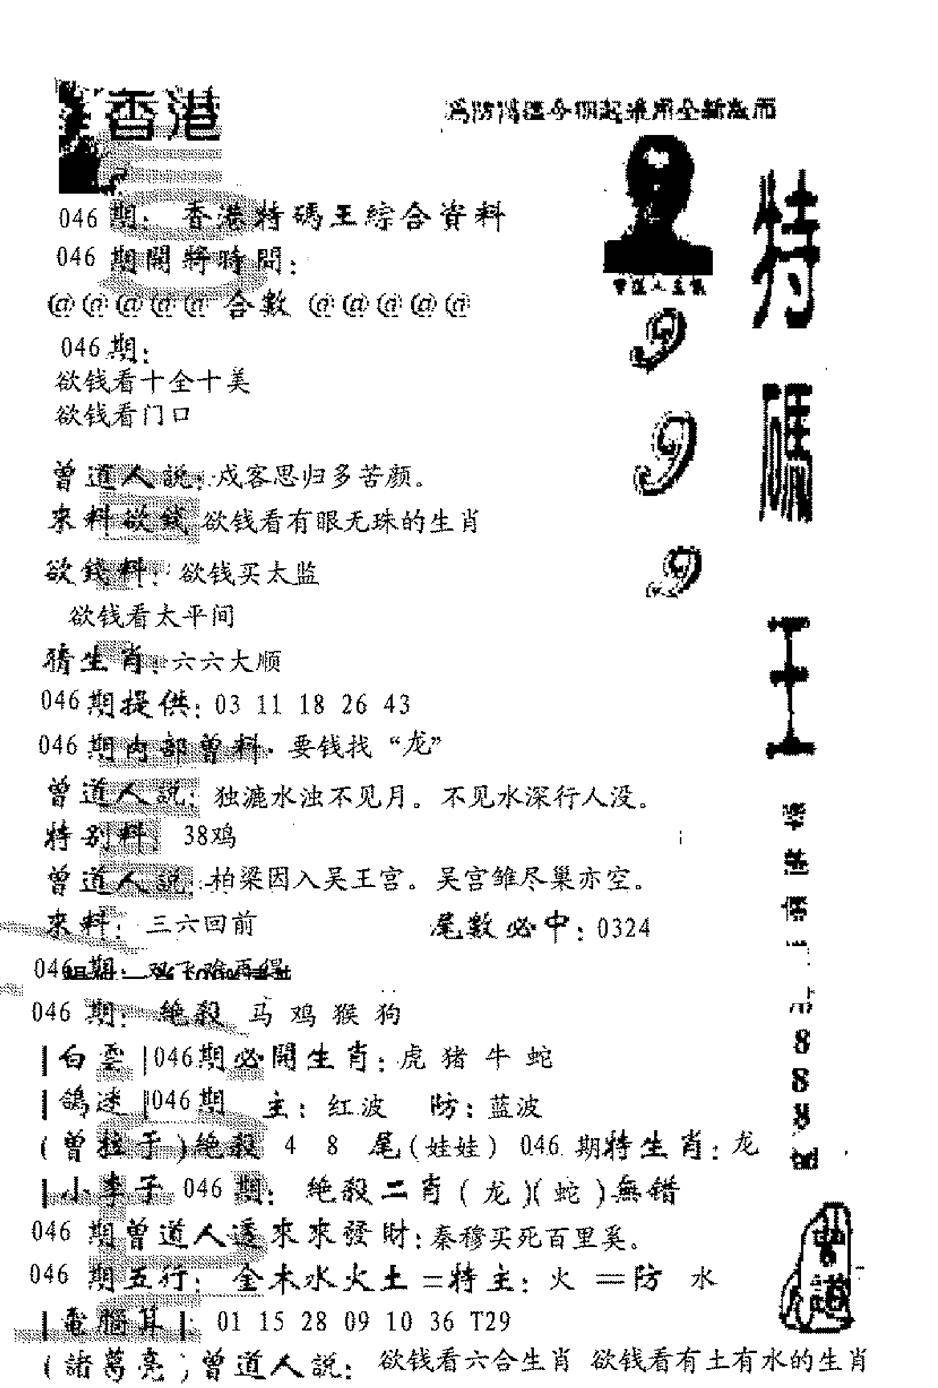 香港
特碼王
046期: 香港特碼王綜合資料
046期開將時間:
@@@@@合數@@@@@
999
046期:
欲钱看十全十美
欲钱看门口
曾道人説: 戍客思归多苦颜。
來料欲錢 欲钱看有眼无珠的生肖
欲錢料: 欲钱买太监
欲钱看太平间
猜生肖: 六六大顺
046期提供: 03 11 18 26 43
046期内部曾料· 要钱找“龙”
曾道人説: 独漉水浊不见月。不见水深行人没。
特别料: 38鸡
曾道人説: 柏梁因入吴王宫。吴宫雏尽巢亦空。
來料: 三六回前 尾数必中: 0324
046期:
046期: 絶殺 马 鸡 猴 狗
|白雲|046期必開生肖: 虎 猪 牛 蛇
|鴿迷|046期 主: 红波 防: 蓝波
(曾拉于)絶殺 4 8 尾(娃娃) 046.期特生肖: 龙
|小李子 046期: 絶殺二肖(龙)(蛇)無错
046期曾道人透來來發財: 秦穆买死百里奚。
046期五行: 金木水火土=特主: 火 =防 水
|電腦算|: 01 15 28 09 10 36 T29
(諸葛亮)曾道人説: 欲钱看六合生肖 欲钱看有土有水的生肖
888
曾道